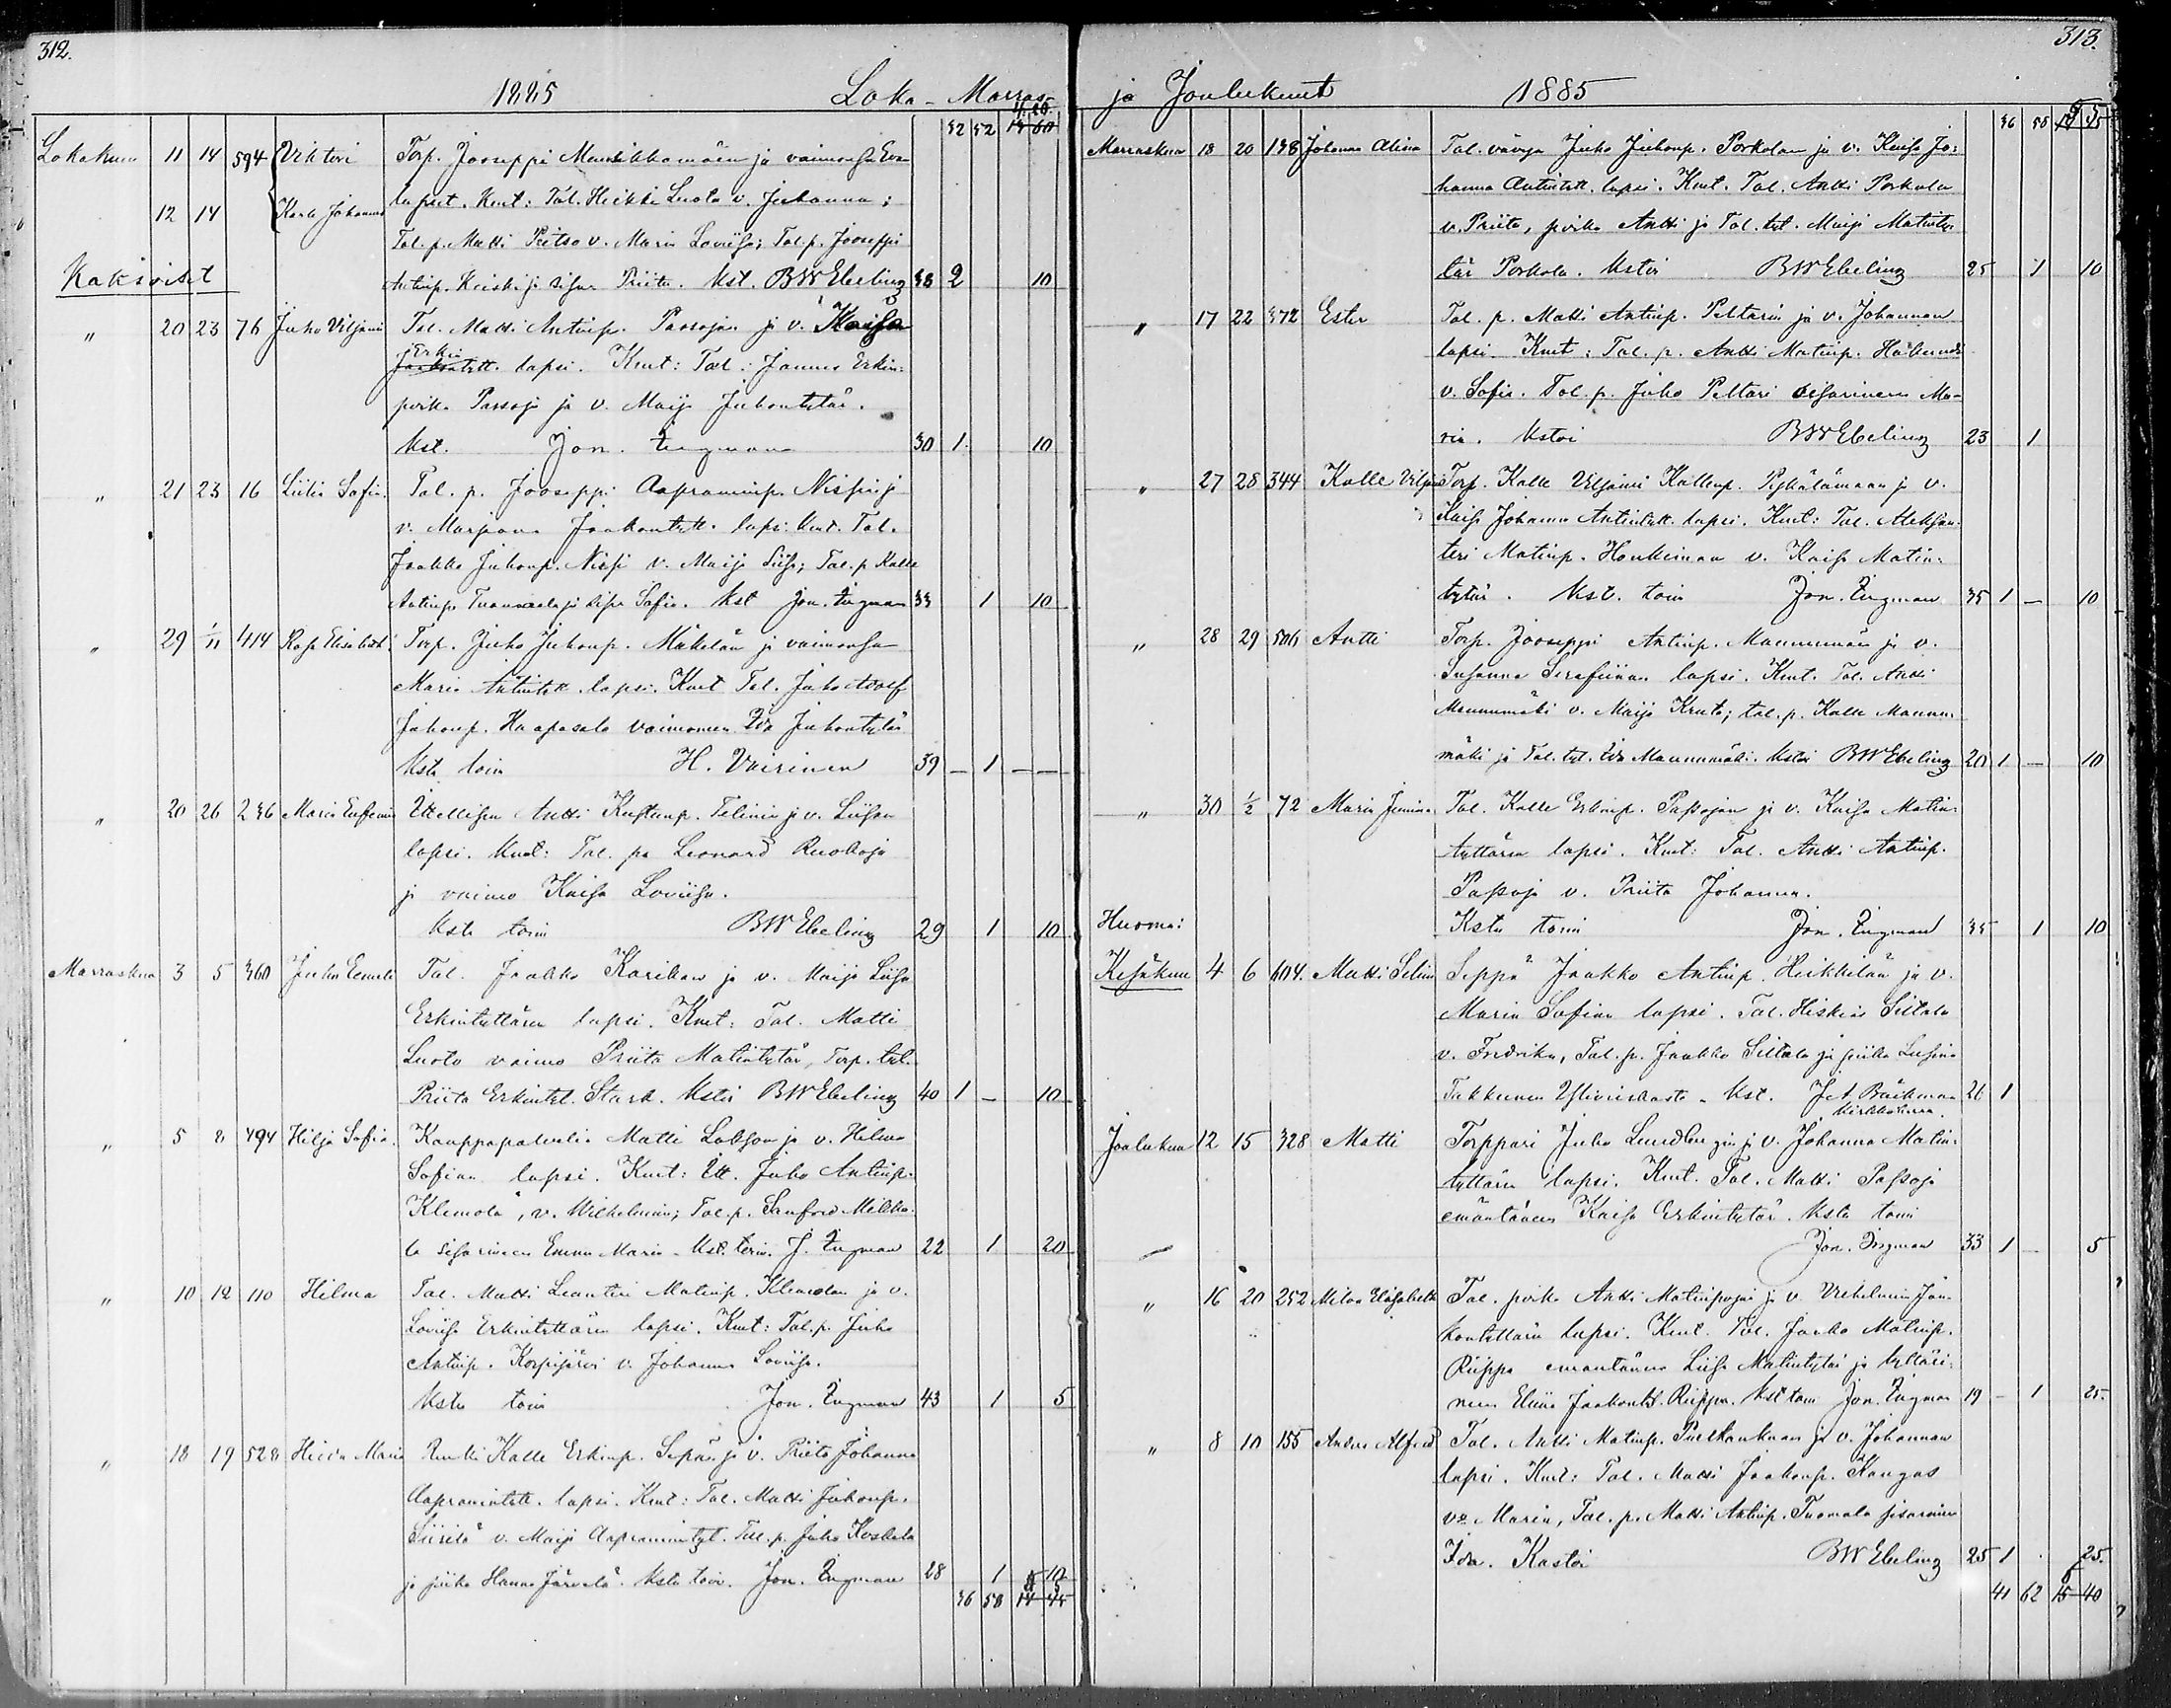 312.
1885 Loka - Marras-
32 52
Lokakuu 11 14 594 Viktori Torp. Jooseppi Mansikkamäen ja vaimonsa Eva
12 14 Karl Johannes lapset. Kmt: Tal. Heikki Luoto v. Johanna;
Tal. p. Matti v. Maria Loviisa; Tal. p. Jooseppi
Kaksoiset Antinp. ja sisar Priita. Kst. BWEbeling 38 2 10
" 20 23 76 Juho Viljami Tal. Matti Antinp. Passojan ja v. Kaisa
Erkin lapsi. Kmt: Tal. Jannes Erkin-
poika Passoja ja v. Maija Juhontytär.
Kst. Jon. Engman 30 1 10
" 21 23 16 Liitia Sofia. Tal. p. Jooseppi Aapraminp. Nissin ja
v. Marjana Jaakontytt. lapsi. Kmt. Tal.
Jaakko Juhonp. Nissi v. Maija Liisa; Tal. p. Kalle
Antinp. ja sisar Sofia. Kst Jon. Engman 33 1 10
" 29 1/11 414 Rosa Elisabeth Torp. Juho Juhonp. Mäkelän ja vaimonsa
Maria Antintytt. lapsi. Kmt Tal. Juho Adolf
Juhonp. Haapasalo vaimonen Ida Juhontytär
Kste toim H. Väirinen 39 - 1 - -
" 20 26 236 Maria Eufemia Itellisen Antti Kustanp. Telinin ja v. Liisan
lapsi. Kmt: Tal. po Leonard Ruokoja
ja vaimo Kaisa Loviisa.
Kste toim BWEbeling 29 1 10
Marraskuu 3 5 360 Juho Eemeli Tal. Jaakko Karikan ja v. Maija Liisa
Erkintyttären lapsi. Kmt: Tal. Matti
Luoto vaimo Priita Matintytär, Torp. tyt.
Priita Erkintyt. Stark. Kstoi BWEbeling 40 1 - 10
" 5 8 494 Hilja Sofia. Kauppapalvelia Matti ja v. Helena
Sofian lapsi. Kmt: Itt. Juho Antinp.
Klemola, v. Wilhelmina; Tal. p. Sanfred
la sisarineen Emma Maria - Kst. toim. J. Engman 22 1 20
" 10 12 110 Hilma Tal. Matti Leantin Matinp. Klemolan ja v.
Loviisa Erkintyttären lapsi. Kmt: Tal. p. Juho
Antinp. Korpijärvi v. Johanna Loviisa.
Kste toim Jon. Engman 43 1 5
" 18 19 528 Maria Renki Kalle Erkinp. Sepän ja v. Priita Johanna
Aapramintytt. lapsi. Kmt: Tal. Matti Juhonp.
Siirilä v. Maija Aapramintyt. Tal. p. Juho Koskela
ja piika Hanna Järvelä. Kste toim. Jon. Engman 28 1 10
36 58
313.
ja Joulukuut 1885
36 58
Marraskuu 18 20 138 Johanna Alina Tal. vävyn Juho Juhonp. Porkolan ja v. Kaisa Jo-
hanna Antintytt. lapsi. Kmt. Tal. Antti Porkola
v. Priita, poika Antti ja Tal. tyt. Maija Matinty-
tär Porkola. Kstoi BWEbeling 25 1 10
" 17 22 372 Ester Tal. p. Matti Antinp. Peltarin ja v. Johannan
lapsi. Kmt: Tal. p. Antti Matinp.
v. Sofia. Tal. p. Juho Peltari sisarineen Ma-
ria. Kstoi BWEbeling 23 1
" 27 28 344 Kalle Viljam Torp. Kalle Viljami Kallenp. ja v.
Kaisa Johanna Antintytt. lapsi. Kmt: Tal. Aleksan-
teri Matinp. Honkinen v. Kaisa Matin-
tytär. Kst. toim Jon. Engman 35 1 - 10
" 28 29 506 Antti Torp. Jooseppi Antinp. Maununmäen ja v.
Susanna Serafiinan lapsi. Kmt. Tal. Antti
Maununmäki v. Maija Kreeta; tal. p. Kalle Maunun-
mäki ja Tal. tyt. Ida Maununmäki. Kstoi BWEbeling 20 1 - 10
" 30 1/2 72 Maria Jemina Tal. Kalle Erkinp. Passojan ja v. Kaisa Matin-
tyttären lapsi. Kmt: Tal. Antti Antinp.
Passoja v. Priita Johanna.
Huoma: Kste toim Jon. Engman 35 1 10
Kesäkuu 4 6 604. Matti Selim Seppä Jaakko Antinp. Heikkilän ja v.
Maria Sofian lapsi. Tal. Hiskias Siltala
v. Fredrika, Tal. p. Jaakko Siltala ja piika Lusina
Takkunen Ylivieskasta - Kst. J A Bäckman 26 1
Kirkkoherra.
Joulukuu 12 15 328 Matti Torppari Juho Lundbergin ja v. Johanna Matin-
tyttären lapsi. Kmt. Tal. Matti Passoja
emäntäneen Kaisa Erkintytär. Kste toim
Jon. Engman 33 1 - 5
" 16 20 252 Milna Elisabeth Tal. poika Antti Matinpojan ja v. Vilhelmina Jaa-
kontyttären lapsi. Kmt. Tal. Jaako Matinp.
Riippa emäntänensä Liisa Matintytär ja tyttäri-
neen Eliina Jaakontyt. Riippa. Kst toim Jon. Engman 19 - 1 25.
" 8 10 155 Anders Alfred Tal. Antti Matinp. ja v. Johannan
lapsi. Kmt: Tal. Matti Jaakonp. Kangas
vo Maria, Tal. p. Matti Antinp. Tuomala sisarineen
Ida. Kastoi BWEbeling 25 1 25.
41 62 15 40